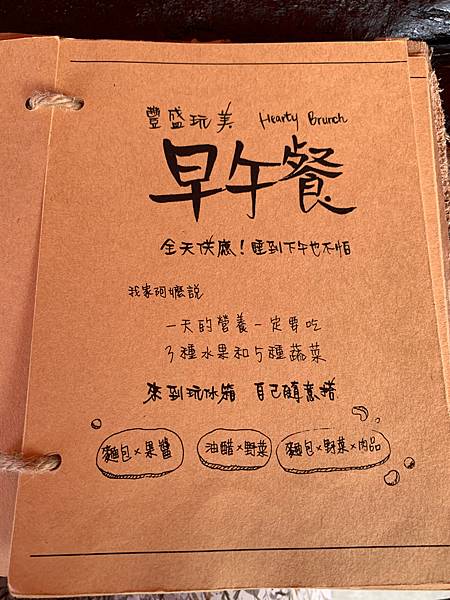 豐盛玩美 Hearty Brunch
早午餐
全天供應！睡到下午也不怕
我家阿嬤說
一天的營養一定要吃
3種水果和5種蔬菜
來到玩冰箱 自己隨意搭
麵包×果醬 油醋×野菜 麵包×野菜×肉品